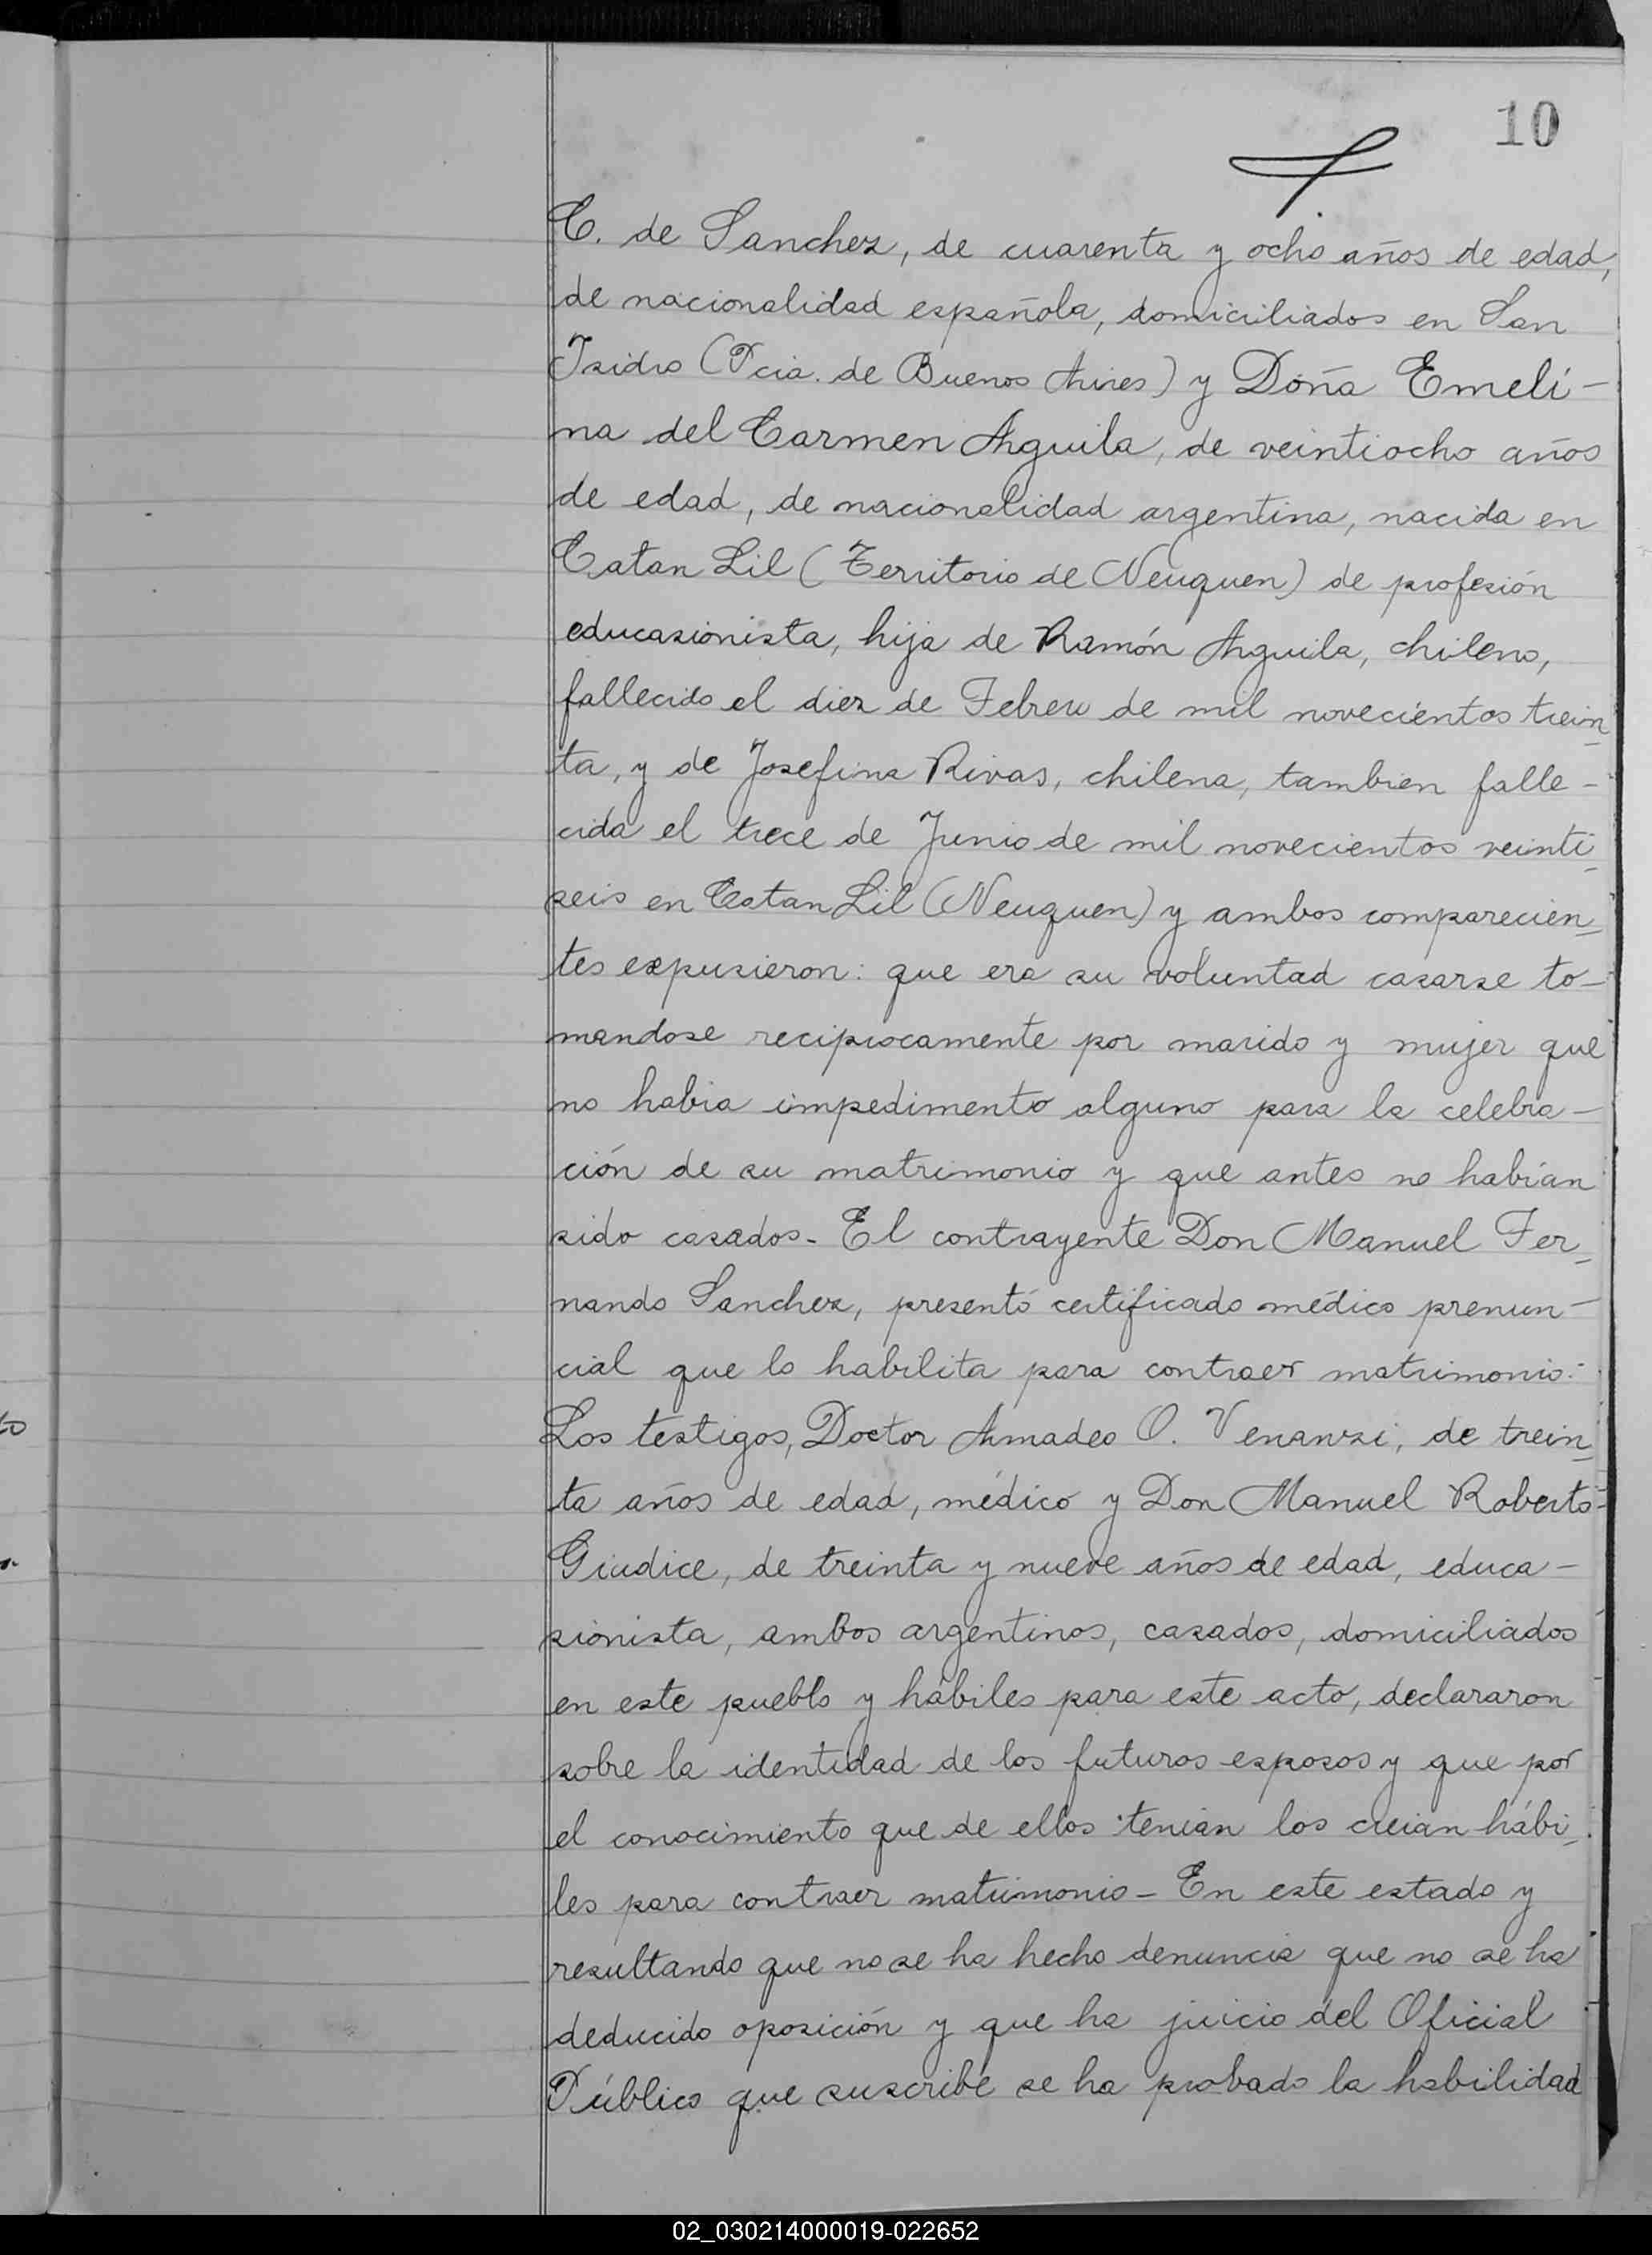 10
C. de Sanchez, de cuarenta y ocho años de edad,
de nacionalidad española, domiciliados en San
Isidro (Pcia. de Buenos Aires) y Doña Emeli-
na del Carmen Aguila, de veintiocho años
de edad, de nacionalidad argentina, nacida en
Catan Lil (Territorio de Neuquen) de profesión
educasionista, hija de Ramón Aguila, chileno,
fallecido el diez de Febrero de mil novecientos trein
ta, y de Josefina Rivas, chilena, tambien falle-
cida el trece de Junio de mil novecientos veinti
seis en Catan Lil (Neuquen) y ambos comparecien
tes expusieron: que era su voluntad casarse to-
mandose reciprocamente por marido y mujer que
no habia impedimento alguno para la celebra-
ción de su matrimonio y que antes no habían
sido casados- El contrayente Don Manuel Fer
nando Sanchez, presentó certificado médico prenun-
cial que lo habilita para contraer matrimonio:
Los testigos, Doctor Amadeo O. Venanzi, de trein
ta años de edad, médico y Don Manuel Roberto
Giudice, de treinta y nueve años de edad, educa-
sionista, ambos argentinos, casados, domiciliados
en este pueblo y hábiles para este acto, declararon
sobre la identidad de los futuros esposos y que por
el conocimiento que de ellos tenian los creian hábi
les para contraer matrimonio- En este estado y
resultando que no se ha hecho denuncia que no se ha
deducido oposición y que ha juicio del Oficial
Público que suscribe se ha probado la habilidad
02_030214000019-022652